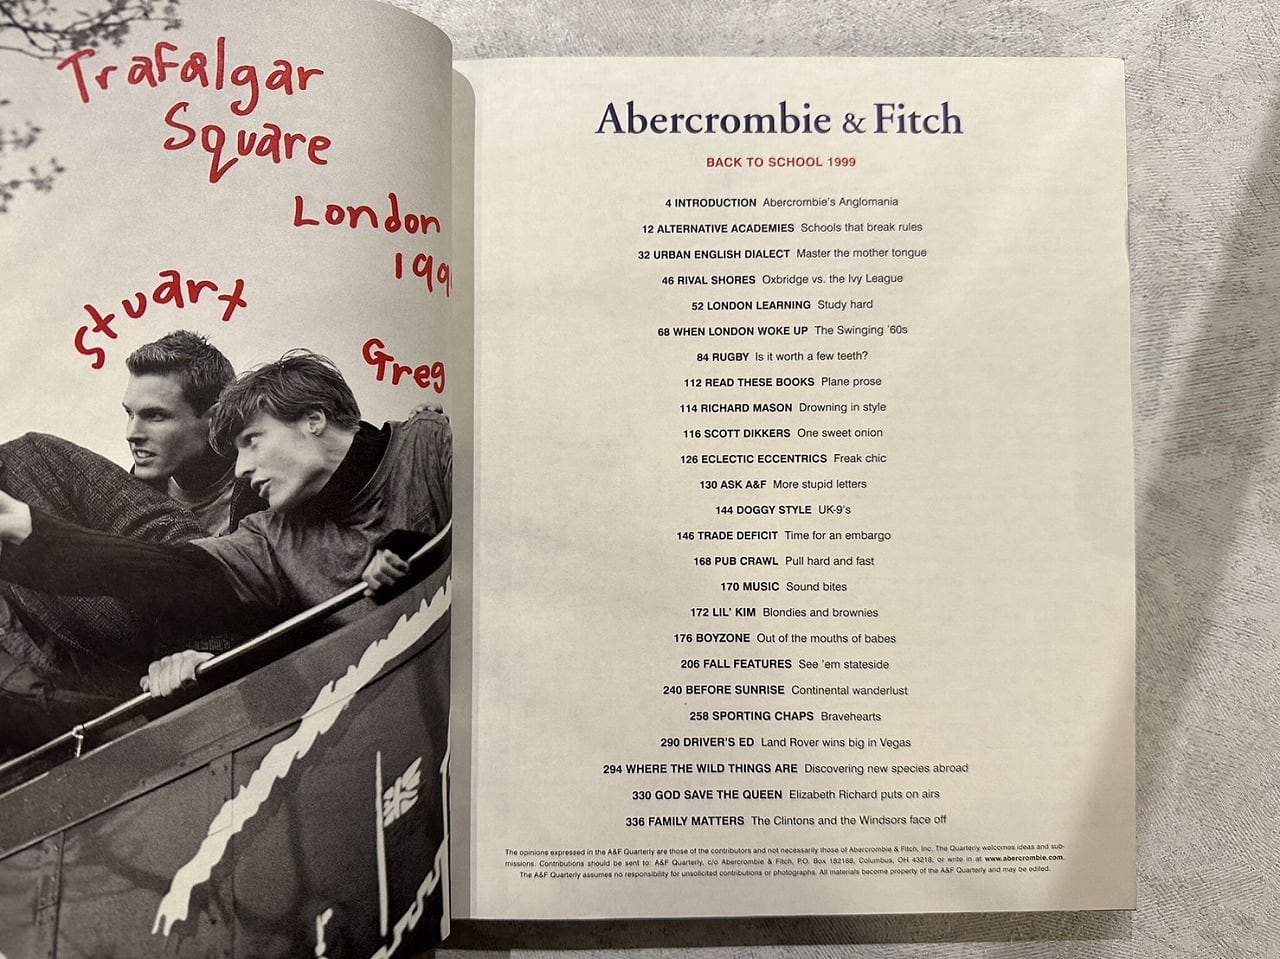 Trafalgar
Square
London
199
Stuart
Greg
Abercrombie & Fitch
BACK TO SCHOOL 1999
4 INTRODUCTION Abercrombie's Anglomania
12 ALTERNATIVE ACADEMIES Schools that break rules
32 URBAN ENGLISH DIALECT Master the mother tongue
46 RIVAL SHORES Oxbridge vs. the Ivy League
52 LONDON LEARNING Study hard
68 WHEN LONDON WOKE UP The Swinging '60s
84 RUGBY Is it worth a few teeth?
112 READ THESE BOOKS Plane prose
114 RICHARD MASON Drowning in style
116 SCOTT DIKKERS One sweet onion
126 ECLECTIC ECCENTRICS Freak chic
130 ASK A&F More stupid letters
144 DOGGY STYLE UK-9's
146 TRADE DEFICIT Time for an embargo
168 PUB CRAWL Pull hard and fast
170 MUSIC Sound bites
172 LIL' KIM Blondies and brownies
176 BOYZONE Out of the mouths of babes
206 FALL FEATURES See 'em stateside
240 BEFORE SUNRISE Continental wanderlust
258 SPORTING CHAPS Bravehearts
290 DRIVER'S ED Land Rover wins big in Vegas
294 WHERE THE WILD THINGS ARE Discovering new species abroad
330 GOD SAVE THE QUEEN Elizabeth Richard puts on airs
336 FAMILY MATTERS The Clintons and the Windsors face off
The opinions expressed in the A&F Quarterly are those of the contributors and not necessarily those of Abercrombie & Fitch, Inc. The Quarterly welcomes ideas and sub-
missions. Contributions should be sent to: A&F Quarterly, c/o Abercrombie & Fitch, P.O. Box 182168, Columbus, OH 43218, or write in at www.abercrombie.com.
The A&F Quarterly assumes no responsibility for unsolicited contributions or photographs. All materials become property of the A&F Quarterly and may be edited.